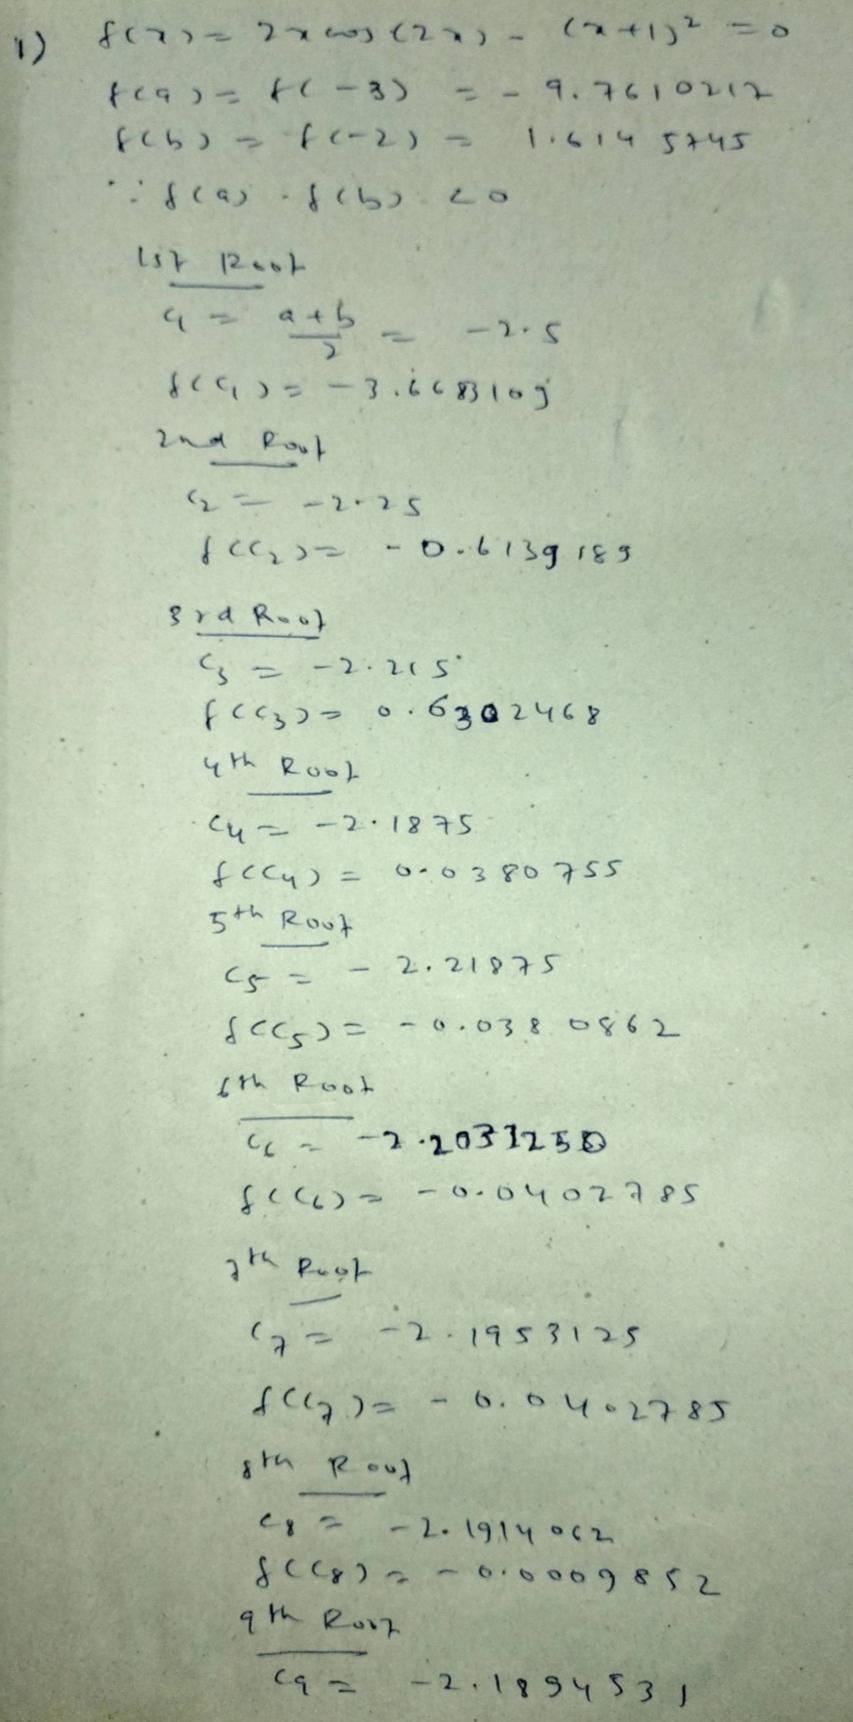 1) f(x) = 2x cos(2x) - (x+1)² = 0
f(a) = f(-3) = -9.7610217
f(b) = f(-2) = 1.6145745
∵ f(a) · f(b) < 0
1st Root
c₁ = a+b/2 = -2.5
f(c₁) = -3.6683109
2nd Root
c₂ = -2.25
f(c₂) = -0.6139189
3rd Root
c₃ = -2.215
f(c₃) = 0.6302468
4th Root
c₄ = -2.1875
f(c₄) = 0.0380755
5th Root
c₅ = -2.21875
f(c₅) = -0.0380862
6th Root
c₆ = -2.2031250
f(c₆) = -0.0402785
7th Root
c₇ = -2.1953125
f(c₇) = -0.0402785
8th Root
c₈ = -2.1914062
f(c₈) = -0.0009852
9th Root
c₉ = -2.1894531